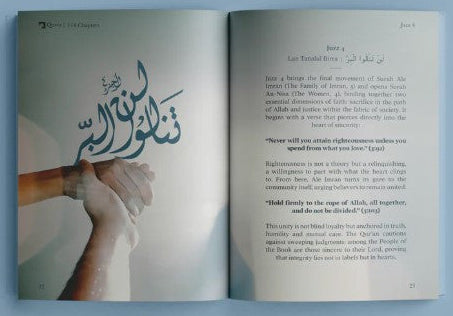 Quran | 114 Chapters
لن
تنالوا البر
22
Juz 4
Juzz 4
Lan Tanalul Birra : لَنْ تَنَالُوا الْبِرَّ
Juzz 4 brings the final movement of Surah Ale
Imran (The Family of Imran, 3) and opens Surah
An-Nisa (The Women, 4), binding together two
essential dimensions of faith: sacrifice in the path
of Allah and justice within the fabric of society. It
begins with a verse that pierces directly into the
heart of sincerity:
“Never will you attain righteousness unless you
spend from what you love.” (3:92)
Righteousness is not a theory but a relinquishing,
a willingness to part with what the heart clings
to. From here, Ale Imran turns its gaze to the
community itself, urging believers to remain united.
“Hold firmly to the rope of Allah, all together,
and do not be divided.” (3:103)
This unity is not blind loyalty but anchored in truth,
humility and mutual care. The Qur'an cautions
against sweeping judgments: among the People of
the Book are those sincere to their Lord, proving
that integrity lies not in labels but in hearts.
23